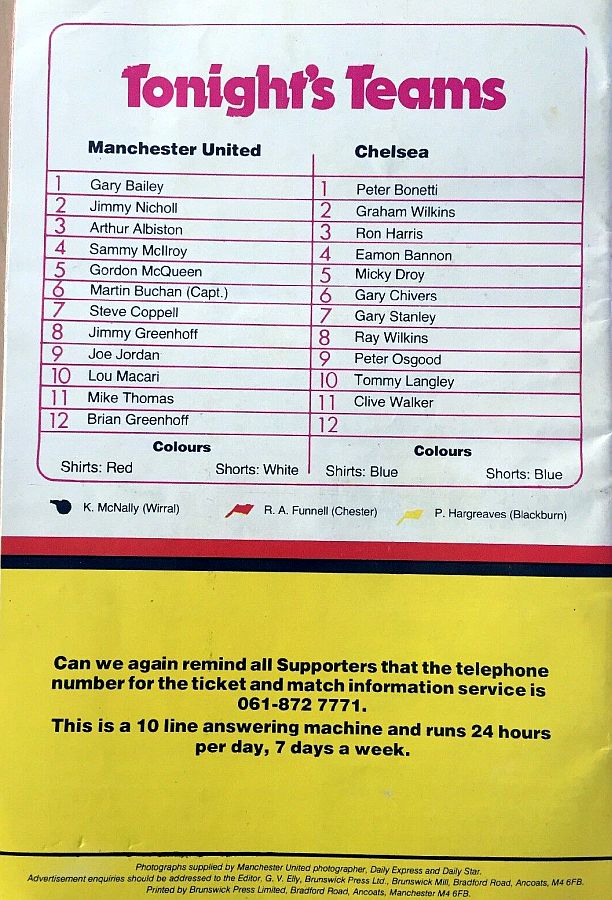 Tonight's Teams
Manchester United
1 Gary Bailey
2 Jimmy Nicholl
3 Arthur Albiston
4 Sammy McIlroy
5 Gordon McQueen
6 Martin Buchan (Capt.)
7 Steve Coppell
8 Jimmy Greenhoff
9 Joe Jordan
10 Lou Macari
11 Mike Thomas
12 Brian Greenhoff
Colours
Shirts: Red Shorts: White
Chelsea
1 Peter Bonetti
2 Graham Wilkins
3 Ron Harris
4 Eamon Bannon
5 Micky Droy
6 Gary Chivers
7 Gary Stanley
8 Ray Wilkins
9 Peter Osgood
10 Tommy Langley
11 Clive Walker
12
Colours
Shirts: Blue Shorts: Blue
K. McNally (Wirral) R. A. Funnell (Chester) P. Hargreaves (Blackburn)
Can we again remind all Supporters that the telephone
number for the ticket and match information service is
061-872 7771.
This is a 10 line answering machine and runs 24 hours
per day, 7 days a week.
Photographs supplied by Manchester United photographer, Daily Express and Daily Star.
Advertisement enquiries should be addressed to the Editor, G. V. Elly, Brunswick Press Ltd., Brunswick Mill, Bradford Road, Ancoats, M4 6FB.
Printed by Brunswick Press Limited, Bradford Road, Ancoats, Manchester M4 6FB.